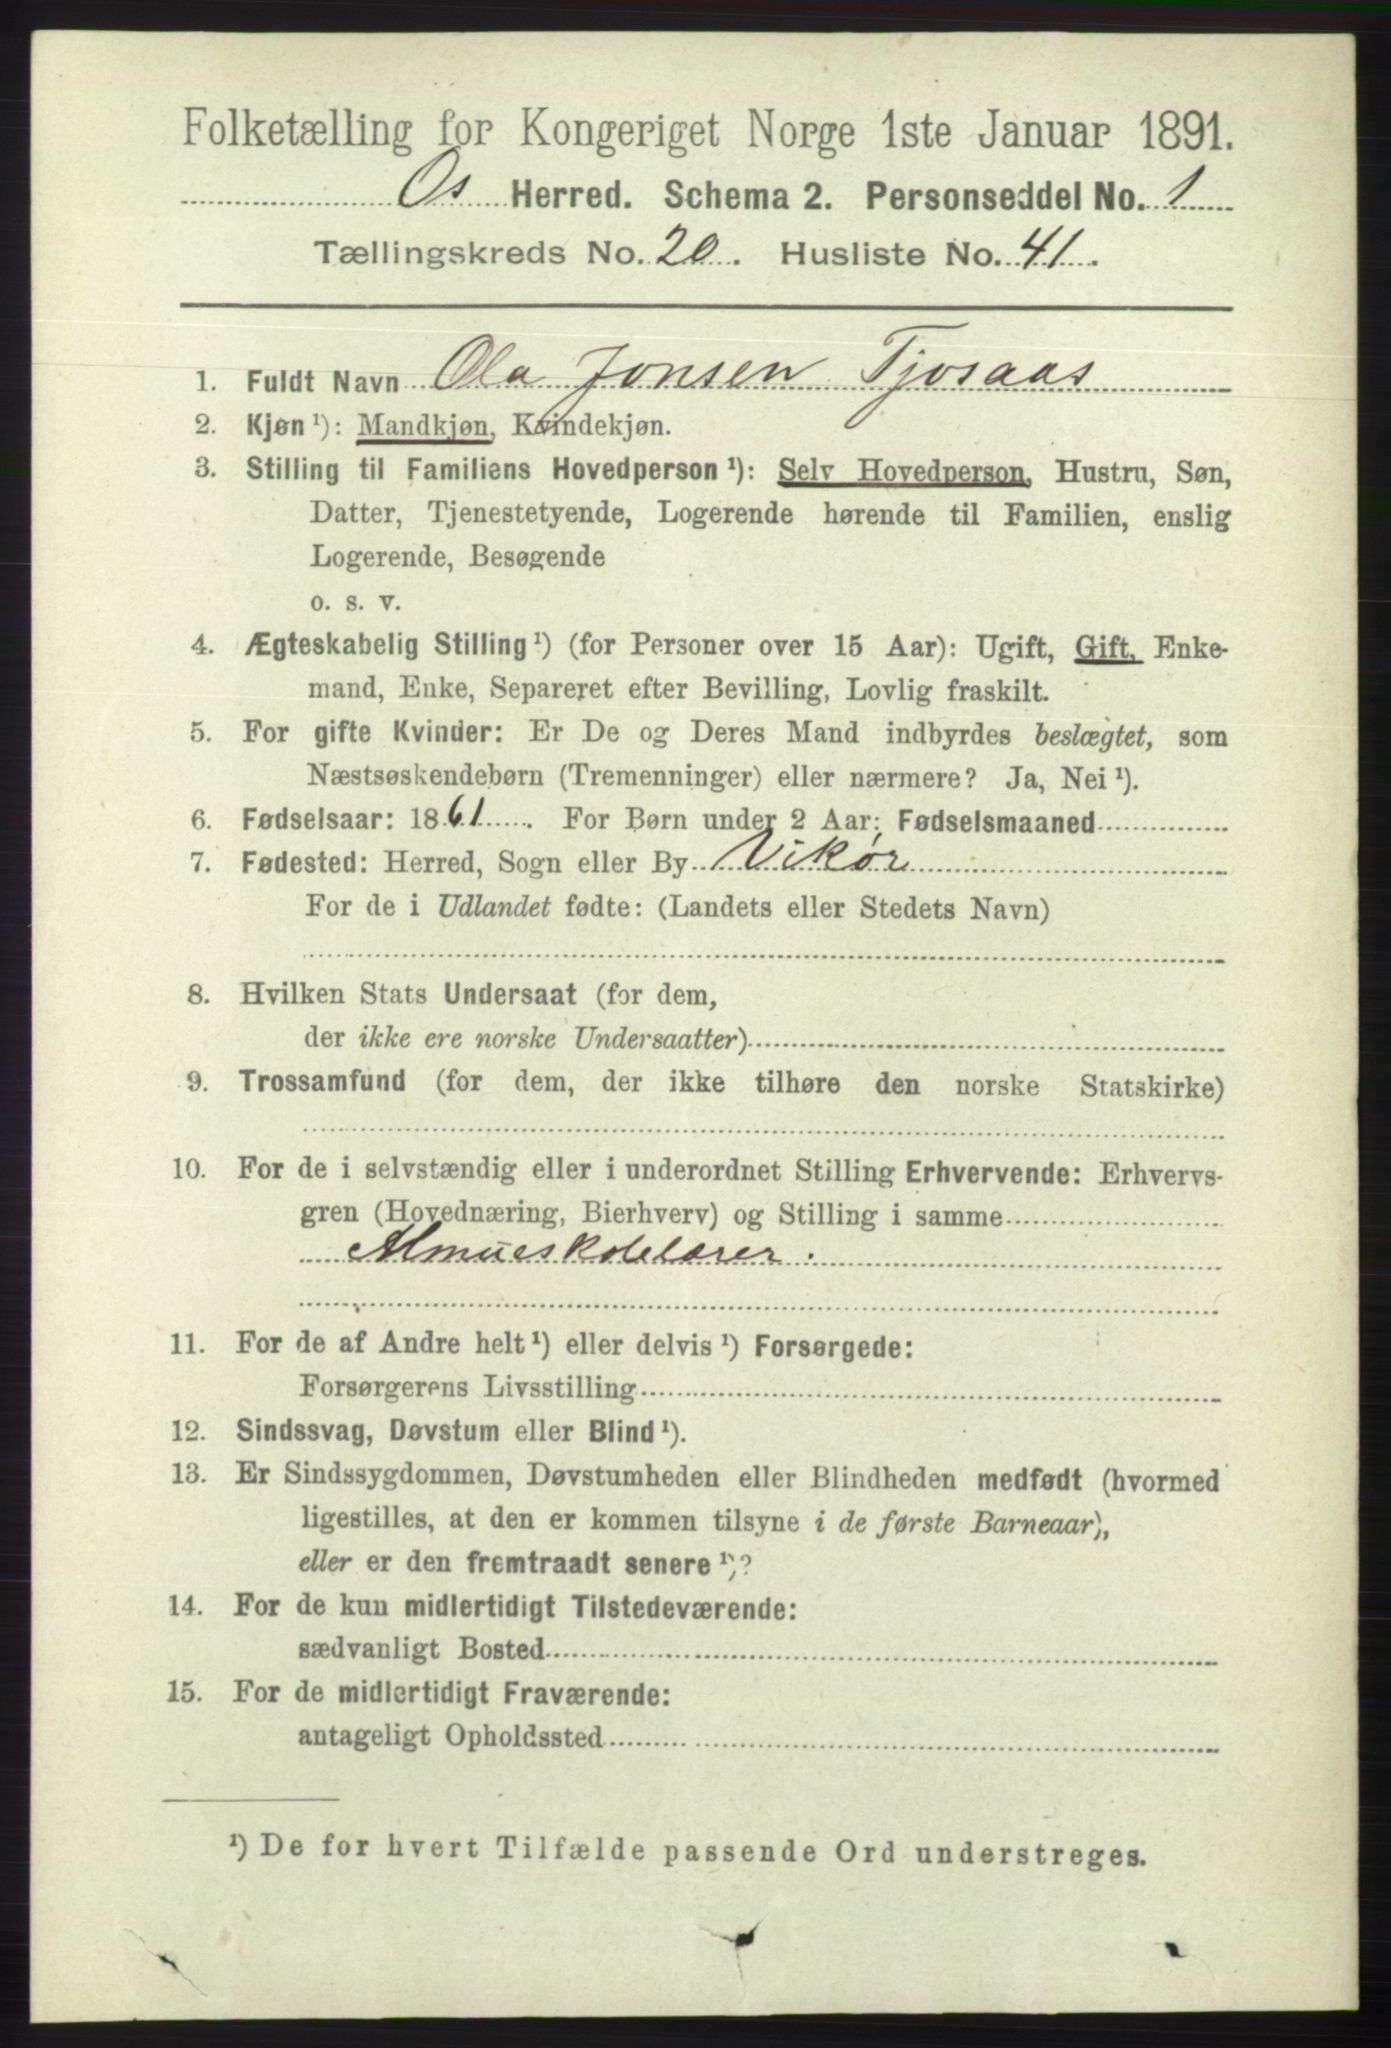 Folketælling for Kongeriget Norge 1ste Januar 1891.
Os Herred. Schema 2. Personseddel No. 1
Tællingskreds No. 20. Husliste No. 41.
1. Fuldt Navn Ola Jonsen Tjosaas
2. Kjøn ¹): Mandkjøn, Kvindekjøn.
3. Stilling til Familiens Hovedperson ¹): Selv Hovedperson, Hustru, Søn,
Datter, Tjenestetyende, Logerende hørende til Familien, enslig
Logerende, Besøgende
o. s. v.
4. Ægteskabelig Stilling ¹) (for Personer over 15 Aar): Ugift, Gift, Enke-
mand, Enke, Separeret efter Bevilling, Lovlig fraskilt.
5. For gifte Kvinder: Er De og Deres Mand indbyrdes beslægtet, som
Næstsøskendebørn (Tremenninger) eller nærmere? Ja, Nei ¹).
6. Fødselsaar: 1861. For Børn under 2 Aar: Fødselsmaaned
7. Fødested: Herred, Sogn eller By Vikør
For de i Udlandet fødte: (Landets eller Stedets Navn)
8. Hvilken Stats Undersaat (for dem,
der ikke ere norske Undersaatter)
9. Trossamfund (for dem, der ikke tilhøre den norske Statskirke)
10. For de i selvstændig eller i underordnet Stilling Erhvervende: Erhvervs-
gren (Hovednæring, Bierhverv) og Stilling i samme
Almueskolelærer.
11. For de af Andre helt ¹) eller delvis ¹) Forsørgede:
Forsørgerens Livsstilling
12. Sindssvag, Døvstum eller Blind ¹).
13. Er Sindssygdommen, Døvstumheden eller Blindheden medfødt (hvormed
ligestilles, at den er kommen tilsyne i de første Barneaar),
eller er den fremtraadt senere ¹)?
14. For de kun midlertidigt Tilstedeværende:
sædvanligt Bosted
15. For de midlertidigt Fraværende:
antageligt Opholdssted
¹) De for hvert Tilfælde passende Ord understreges.